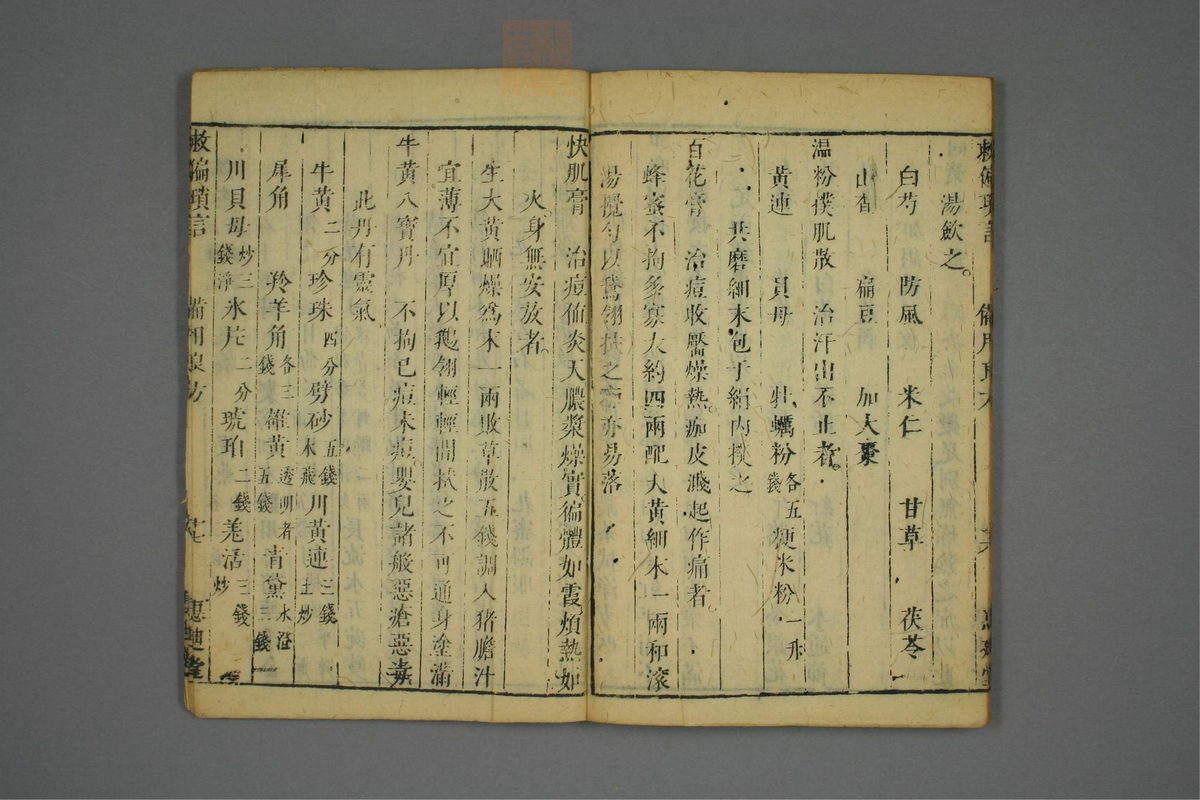 湯飲之。
白芍　防風　米仁　甘草　茯苓
山查　扁豆　加大棗
温粉撲肌散　治汗出不止者。
黃連　貝母　牡蠣粉各五錢粳米粉一升
共磨細末包于絹内撲之
白花膏　治痘收靨燥熱。痂皮濺起作痛者。
蜂蜜不拘多寡大約四兩配大黃細末一兩和滾
湯攪勻以鵞翎拂之痂亦易落
快肌膏　治痘值炎天膿漿燥實。徧體如霞。煩熱如
火。身無安放者。
生大黃晒燥爲末一兩敗草散五錢調入猪膽汁
宜薄不宜厚以鵝翎輕輕間拭之不可通身塗滿
牛黃八寶丹　不拘已痘未痘嬰兒諸般惡瘡惡毒
此丹有靈氣
牛黃二分珍珠四分劈砂五錢水飛川黃連三錢土炒
犀角　羚羊角各三錢雒黃透明者五錢青黛水澄三錢
川貝母炒三錢淨氷片二分琥珀二錢羌活三錢炒
救偏瑣言　備用良方　十七　惠迪堂